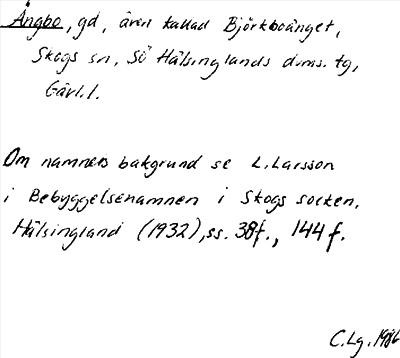 Ängbo, gd, även kallad Björkboänget,
Skogs sn, Sö Hälsinglands doms. tg,
Gävl.l.
Om namnens bakgrund se L. Larsson
i Bebyggelsenamnen i Skogs socken,
Hälsingland (1932), ss. 38f., 144 f.
C. Lg. 1986